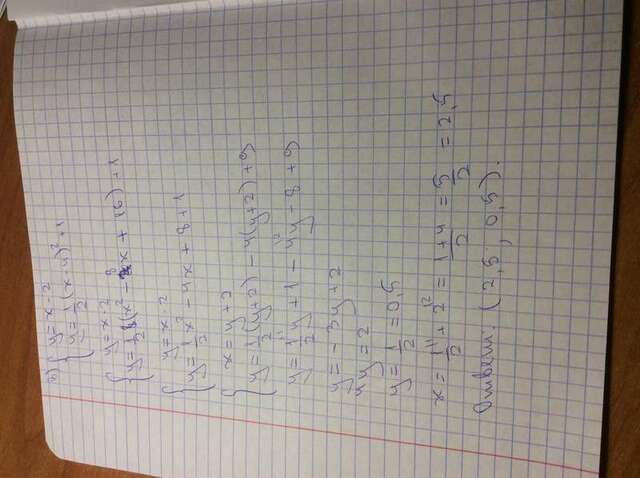 в) { y = x - 2
y = 1/2 (x - 4)² + 1
{ y = x - 2
y = 1/2 (x² - 8x + 16) + 1
{ y = x - 2
y = 1/2 x² - 4x + 8 + 1
{ x = y + 2
y = 1/2 (y + 2) - 4(y + 2) + 9
y = 1/2 y + 1 - 4y - 8 + 9
y = - 3y + 2
4y = 2
y = 1/2 = 0,5
x = 1/2 + 2 = 1 + 4 / 2 = 5/2 = 2,5
Ответ: (2,5; 0,5).